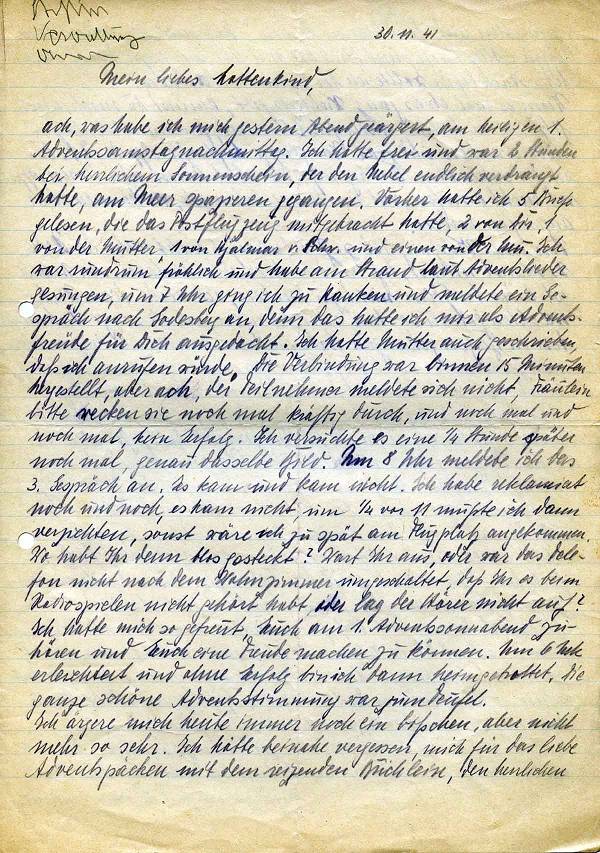 Verwaltung
30. 11. 41
Mein liebes Kattenkind,
ach, was habe ich mich gestern Abend geärgert, am heiligen 1.
Adventssamstagnachmittag. Ich hatte frei und war 2 Stunden
bei herrlichem Sonnenschein, der den Nebel endlich verdrängt
hatte, am Meer spazieren gegangen. Vorher hatte ich 5 Briefe
gelesen, die das Postflugzeug mitgebracht hatte, 2 von Dir, 1
von der Mutter, 1 von Hjalmar und einen von der Ich
war rundrum fröhlich und habe am Strand laut Adventslieder
gesungen, um 7 Uhr ging ich zu und meldete ein Ge-
spräch nach Godesberg an, denn das hatte ich mir als Advents-
freude für Dich ausgedacht. Ich hatte Mutter auch geschrieben,
daß ich anrufen würde. Die Verbindung war binnen 15 Minuten
hergestellt, aber ach, der Teilnehmer meldete sich nicht, Fräulein
bitte wecken sie noch mal kräftig durch, und noch mal und
noch mal, kein Erfolg. Ich versuchte es eine 1/4 Stunde später
noch mal, genau dasselbe Bild. Um 8 Uhr meldete ich das
3. Gespräch an. Es kam und kam nicht. Ich habe reklamiert
noch und noch, es kam nicht um 1/4 vor 11 mußte ich dann
verzichten, sonst wäre ich zu spät am Flugplatz angekommen.
Wo habt Ihr denn blos gesteckt? Wart Ihr aus, oder war das Tele-
fon nicht nach dem Wohnzimmer umgeschaltet, daß Ihr es beim
Radiospielen nicht gehört habt oder lag der Hörer nicht auf?
Ich hatte mich so gefreut Euch am 1. Adventssonnabend zu
hören und Euch eine Freude machen zu können. Um 6
erleichtert und ohne Erfolg bin ich dann heimgetrottet, die
ganze schöne Adventsstimmung war zum Teufel.
Ich ärgere mich heute immer noch ein bißchen, aber nicht
mehr so sehr. Ich hätte beinahe vergessen, mich für das liebe
Adventspäcken mit dem reizenden Büchlein, den herrlichen